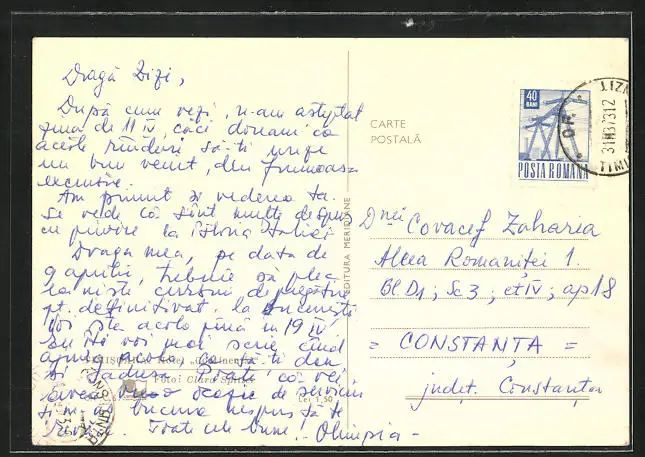 Dragă Zizi,
După cum vezi, n-am așteptat
până de 11 IV, căci doream ca
aceste rânduri să-ți ureze
un bun venit, din frumoasa
excursie.
Am primit și vederea ta.
Se vede că sînt multe de spus
cu privire la istoria Italiei
Draga mea, pe data de
9 aprilie, trebuie să plec
la niște cursuri de pregătire
pt. definitivat, la București
Voi sta acolo pînă în 19 IV.
Eu îți voi mai scrie, când
ajung acolo, ca să-ți dau
și adresa. Poate că vei
avea vreo ocazie de serviciu
și m-aș bucura nespus să te
revăd. Toate cele bune! - Olimpia -
Foto: Clara Spitzer
Lei 1,50
EDITURA MERIDIANE
CARTE
POȘTALĂ
40
BANI
POSTA ROMANA
Dnei Covacef Zaharia
Aleea Romaniței 1.
Bl. D1; Sc 3; et IV; ap 18
= CONSTANȚA =
județ. Constanța